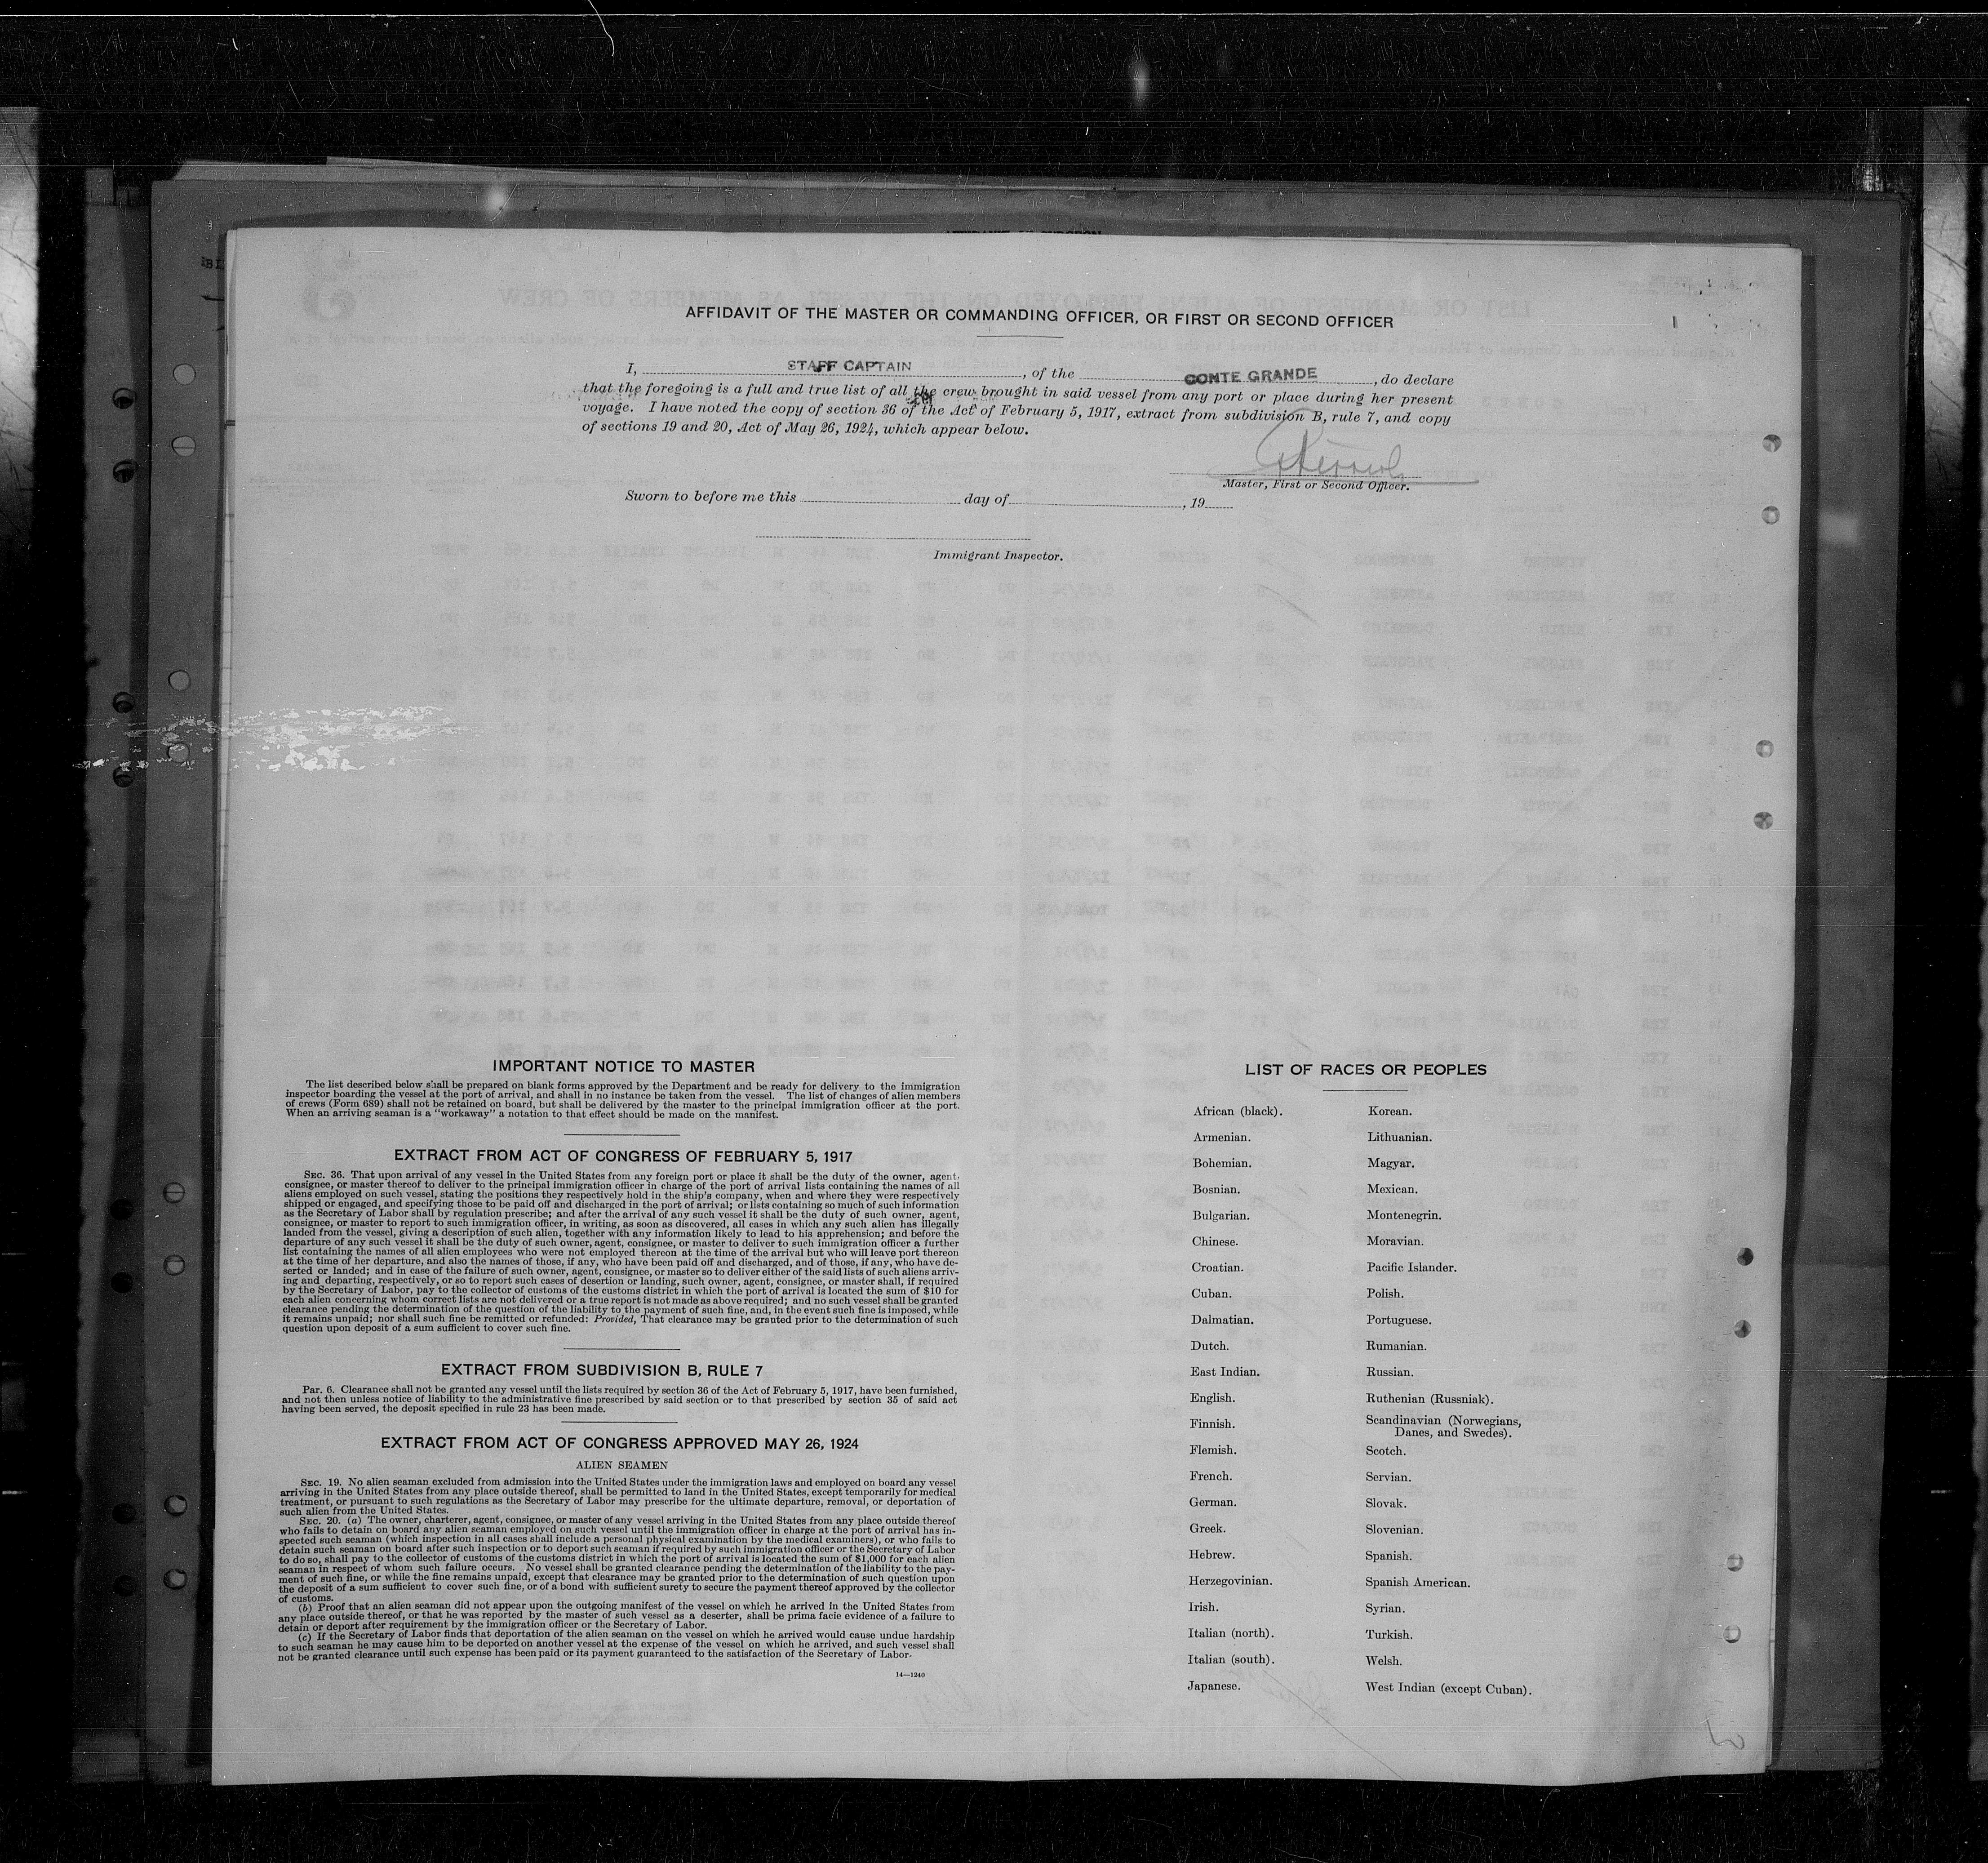 AFFIDAVIT OF THE MASTER OR COMMANDING OFFICER, OR FIRST OR SECOND OFFICER
I, STAFF CAPTAIN, of the CONTE GRANDE, do declare
that the foregoing is a full and true list of all the crew brought in said vessel from any port or place during her present
voyage. I have noted the copy of section 36 of the Act of February 5, 1917, extract from subdivision B, rule 7, and copy
of sections 19 and 20, Act of May 26, 1924, which appear below.
Master, First or Second Officer.
Sworn to before me this day of , 19
Immigrant Inspector.
IMPORTANT NOTICE TO MASTER
The list described below shall be prepared on blank forms approved by the Department and be ready for delivery to the immigration
inspector boarding the vessel at the port of arrival, and shall in no instance be taken from the vessel. The list of changes of alien members
of crews (Form 689) shall not be retained on board, but shall be delivered by the master to the principal immigration officer at the port.
When an arriving seaman is a "workaway" a notation to that effect should be made on the manifest.
EXTRACT FROM ACT OF CONGRESS OF FEBRUARY 5, 1917
SEC. 36. That upon arrival of any vessel in the United States from any foreign port or place it shall be the duty of the owner, agent,
consignee, or master thereof to deliver to the principal immigration officer in charge of the port of arrival lists containing the names of all
aliens employed on such vessel, stating the positions they respectively hold in the ship's company, when and where they were respectively
shipped or engaged, and specifying those to be paid off and discharged in the port of arrival; or lists containing so much of such information
as the Secretary of Labor shall by regulation prescribe; and after the arrival of any such vessel it shall be the duty of such owner, agent,
consignee, or master to report to such immigration officer, in writing, as soon as discovered, all cases in which any such alien has illegally
landed from the vessel, giving a description of such alien, together with any information likely to lead to his apprehension; and before the
departure of any such vessel it shall be the duty of such owner, agent, consignee, or master to deliver to such immigration officer a further
list containing the names of all alien employees who were not employed thereon at the time of the arrival but who will leave port thereon
at the time of her departure, and also the names of those, if any, who have been paid off and discharged, and of those, if any, who have de-
serted or landed; and in case of the failure of such owner, agent, consignee, or master so to deliver either of the said lists of such aliens arriv-
ing and departing, respectively, or so to report such cases of desertion or landing, such owner, agent, consignee, or master shall, if required
by the Secretary of Labor, pay to the collector of customs of the customs district in which the port of arrival is located the sum of $10 for
each alien concerning whom correct lists are not delivered or a true report is not made as above required; and no such vessel shall be granted
clearance pending the determination of the question of the liability to the payment of such fine, and, in the event such fine is imposed, while
it remains unpaid; nor shall such fine be remitted or refunded: Provided, That clearance may be granted prior to the determination of such
question upon deposit of a sum sufficient to cover such fine.
EXTRACT FROM SUBDIVISION B, RULE 7
Par. 6. Clearance shall not be granted any vessel until the lists required by section 36 of the Act of February 5, 1917, have been furnished,
and not then unless notice of liability to the administrative fine prescribed by said section or to that prescribed by section 35 of said act
having been served, the deposit specified in rule 23 has been made.
EXTRACT FROM ACT OF CONGRESS APPROVED MAY 26, 1924
ALIEN SEAMEN
SEC. 19. No alien seaman excluded from admission into the United States under the immigration laws and employed on board any vessel
arriving in the United States from any place outside thereof, shall be permitted to land in the United States, except temporarily for medical
treatment, or pursuant to such regulations as the Secretary of Labor may prescribe for the ultimate departure, removal, or deportation of
such alien from the United States.
SEC. 20. (a) The owner, charterer, agent, consignee, or master of any vessel arriving in the United States from any place outside thereof
who fails to detain on board any alien seaman employed on such vessel until the immigration officer in charge at the port of arrival has in-
spected such seaman (which inspection in all cases shall include a personal physical examination by the medical examiners), or who fails to
detain such seaman on board after such inspection or to deport such seaman if required by such immigration officer or the Secretary of Labor
to do so, shall pay to the collector of customs of the customs district in which the port of arrival is located the sum of $1,000 for each alien
seaman in respect of whom such failure occurs. No vessel shall be granted clearance pending the determination of the liability to the pay-
ment of such fine, or while the fine remains unpaid, except that clearance may be granted prior to the determination of such question upon
the deposit of a sum sufficient to cover such fine, or of a bond with sufficient surety to secure the payment thereof approved by the collector
of customs.
(b) Proof that an alien seaman did not appear upon the outgoing manifest of the vessel on which he arrived in the United States from
any place outside thereof, or that he was reported by the master of such vessel as a deserter, shall be prima facie evidence of a failure to
detain or deport after requirement by the immigration officer or the Secretary of Labor.
(c) If the Secretary of Labor finds that deportation of the alien seaman on the vessel on which he arrived would cause undue hardship
to such seaman he may cause him to be deported on another vessel at the expense of the vessel on which he arrived, and such vessel shall
not be granted clearance until such expense has been paid or its payment guaranteed to the satisfaction of the Secretary of Labor.
14—1240
LIST OF RACES OR PEOPLES
African (black).
Armenian.
Bohemian.
Bosnian.
Bulgarian.
Chinese.
Croatian.
Cuban.
Dalmatian.
Dutch.
East Indian.
English.
Finnish.
Flemish.
French.
German.
Greek.
Hebrew.
Herzegovinian.
Irish.
Italian (north).
Italian (south).
Japanese.
Korean.
Lithuanian.
Magyar.
Mexican.
Montenegrin.
Moravian.
Pacific Islander.
Polish.
Portuguese.
Rumanian.
Russian.
Ruthenian (Russniak).
Scandinavian (Norwegians,
Danes, and Swedes).
Scotch.
Servian.
Slovak.
Slovenian.
Spanish.
Spanish American.
Syrian.
Turkish.
Welsh.
West Indian (except Cuban).